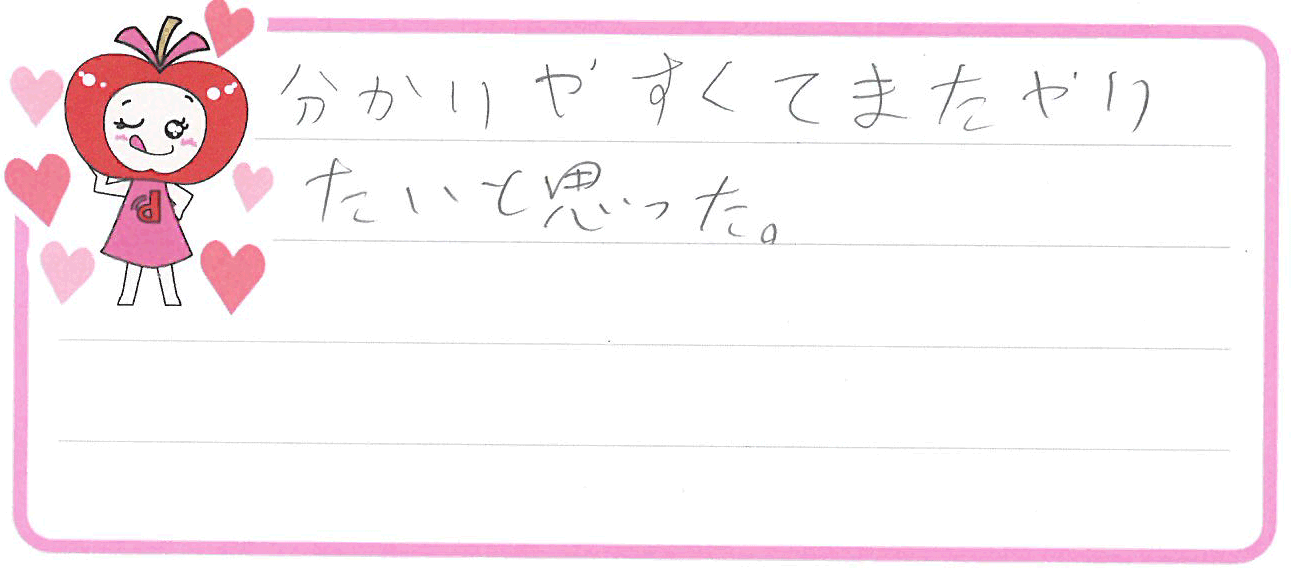 分かりやすくてまたやり
たいと思った。
d